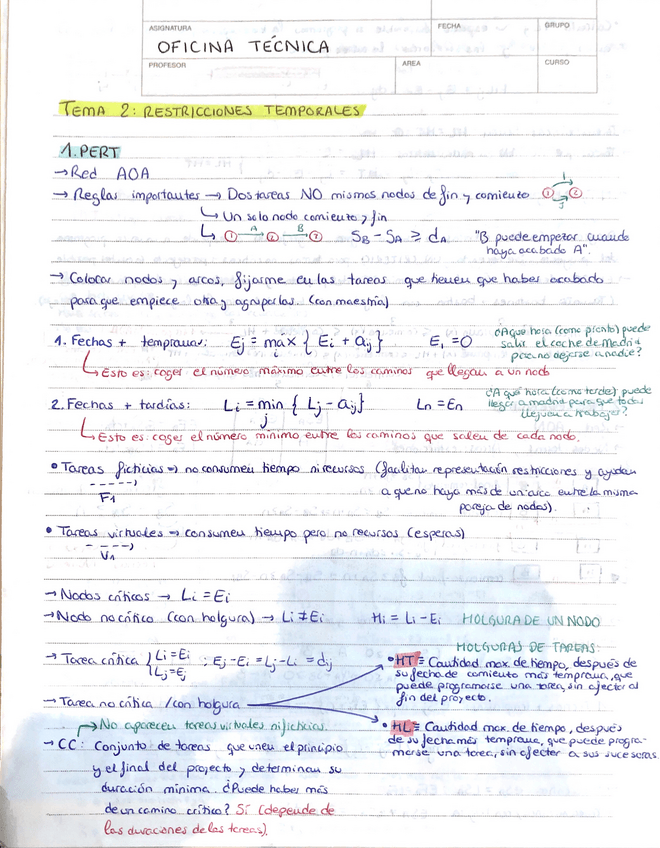 ASIGNATURA
OFICINA TÉCNICA
FECHA
GRUPO
PROFESOR
AREA
CURSO
TEMA 2: RESTRICCIONES TEMPORALES
1. PERT
→ Red AOA
→ Reglas importantes → Dos tareas NO mismos nodos de fin y comienzo ① i ② j
↳ Un solo nodo comienzo y fin
↳ ① A→ ② B→ ③ SB - SA ≥ dA "B puede empezar cuando
haya acabado A".
→ Colocar nodos y arcos, fijarme en las tareas que tienen que haber acabado
para que empiece otra y agruparlas. (con maestría)
1. Fechas + tempranas: Ej = máx { Ei + aij } E1 = 0
i
¿A qué hora (como pronto) puede
salir el coche de Madrid
para no dejarse a nadie?
↳ Esto es: coger el número máximo entre los caminos que llegan a un nodo
2. Fechas + tardías: Li = min { Lj - aij } Ln = En
j
¿A qué hora (como tarde) puede
llegar a madrid para que todos
lleguen a trabajar?
↳ Esto es: coger el número mínimo entre los caminos que salen de cada nodo.
• Tareas ficticias → no consumen tiempo ni recursos (facilitar representación restricciones y ayudan
F1
a que no haya más de un arco entre la misma
pareja de nodos).
• Tareas virtuales → consumen tiempo pero no recursos (esperas)
V1
→ Nodos críticos → Li = Ei
→ Nodo no crítico (con holgura) → Li ≠ Ei Hi = Li - Ei HOLGURA DE UN NODO
HOLGURAS DE TAREAS:
→ Tarea crítica { Li = Ei
Lj = Ej ; Ej - Ei = Lj - Li = dij
• HT ≡ Cantidad max. de tiempo, después de
su fecha de comiento más temprana, que
puede programarse una tarea, sin afectar al
fin del proyecto.
→ Tarea no crítica / con holgura
• HL ≡ Cantidad max. de tiempo, después
de su fecha más temprana, que puede progra-
marse una tarea, sin afectar a sus sucesoras.
→ No aparecen tareas virtuales ni ficticias.
→ CC: Conjunto de tareas que unen el principio
y el final del proyecto y determinan su
duración mínima. ¿Puede haber más
de un camino crítico? Sí (depende de
las duraciones de las tareas).